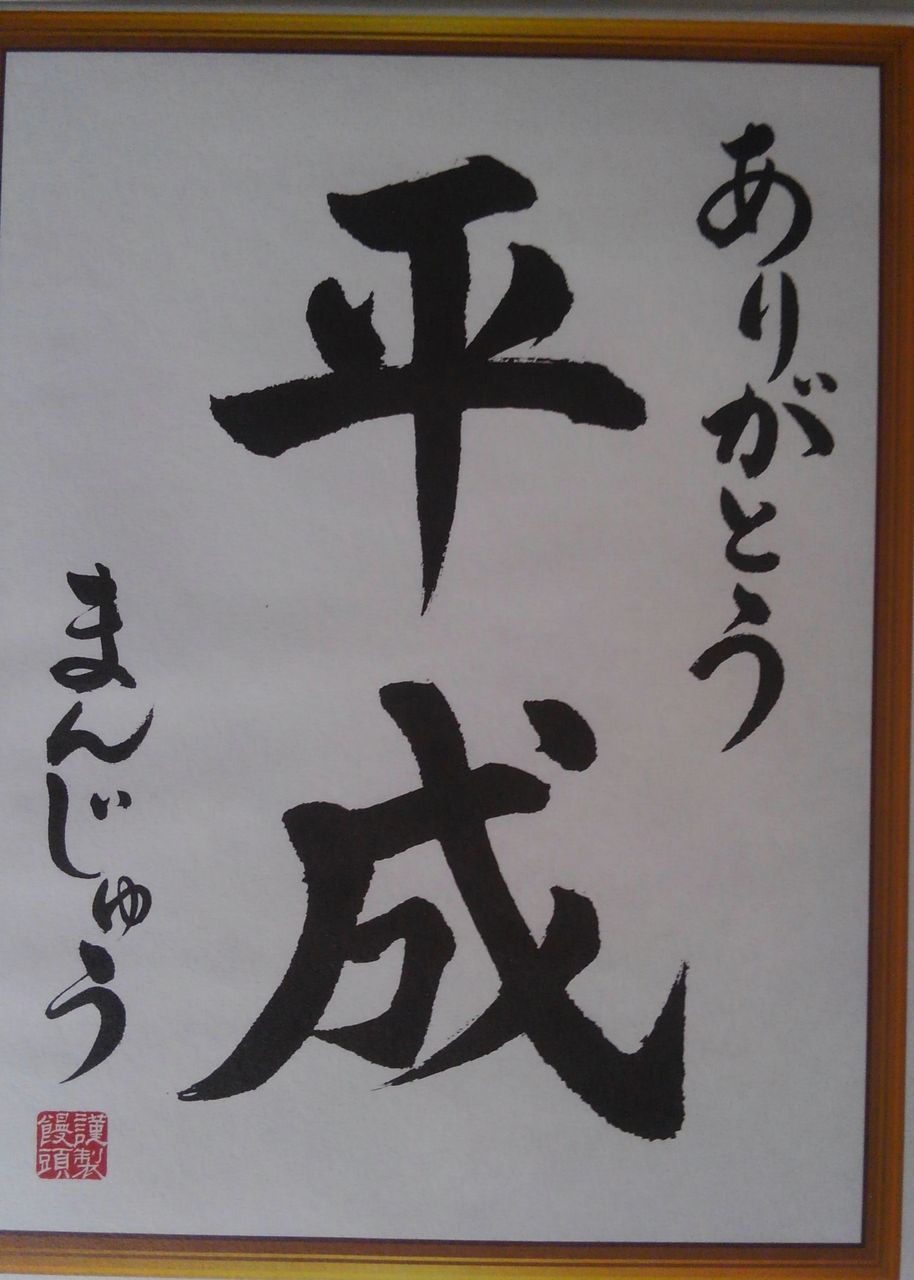 ありがとう
平成
まんじゅう
謹製
饅頭